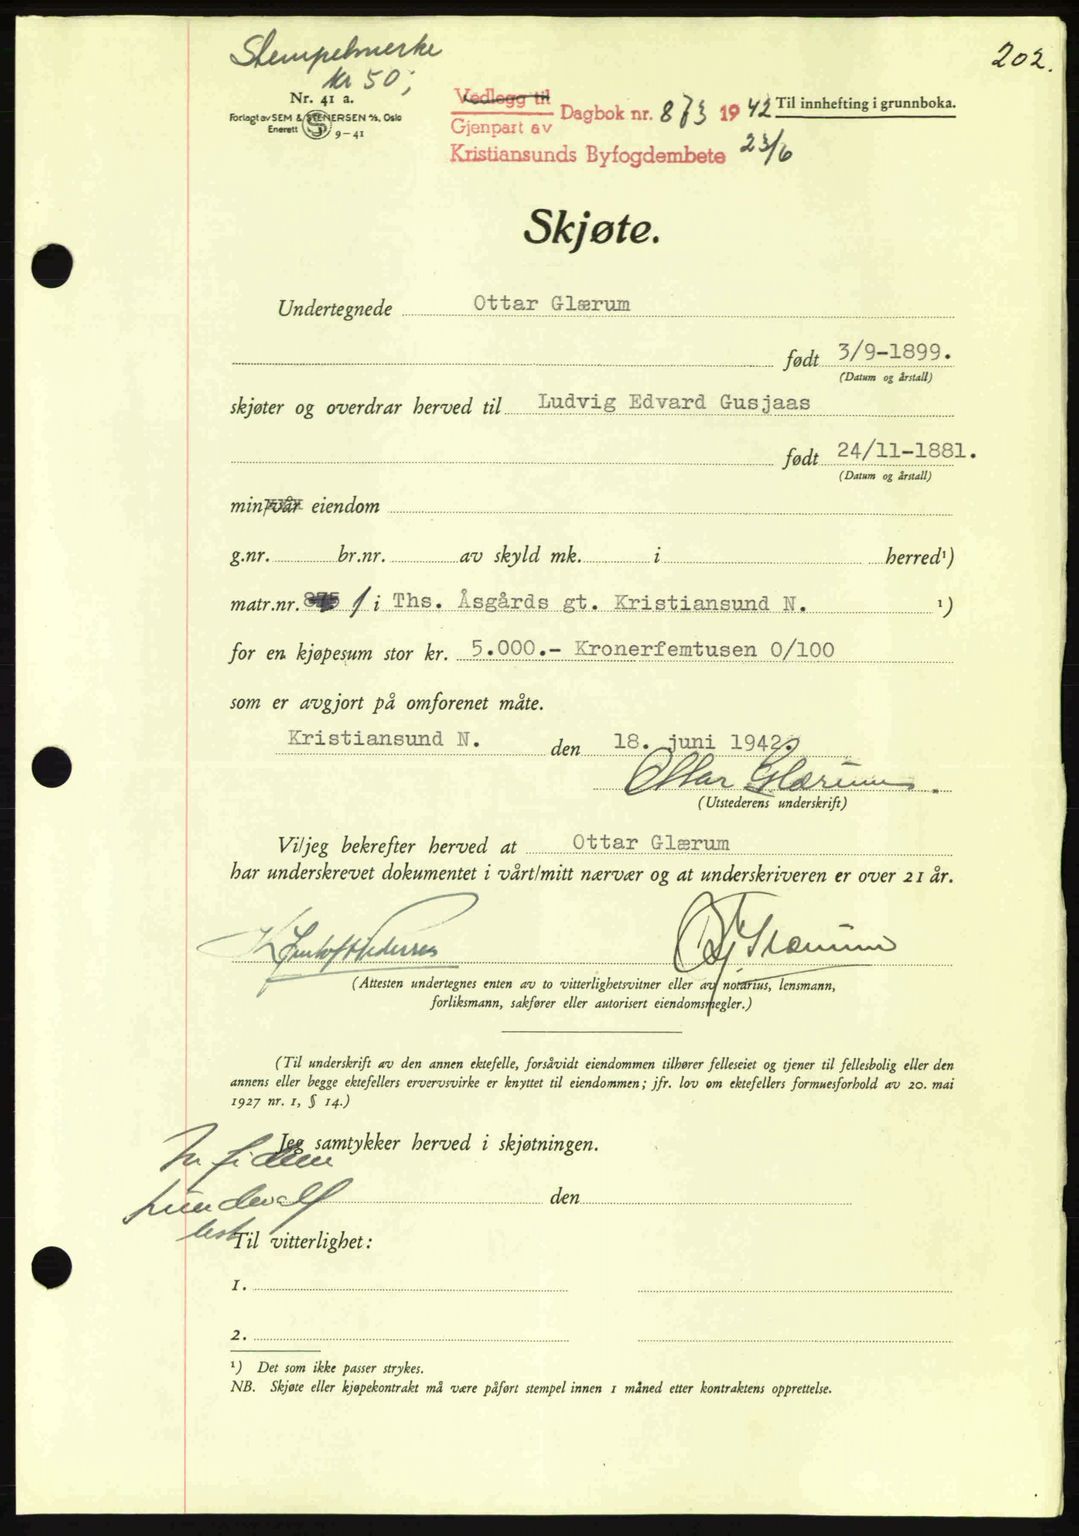 202.
Stempelmerke
kr 50,-
Nr. 41 a.
Forlagt av SEM & STENERSEN A/S, Oslo
Enerett 9-41
Vedlegg til
Gjenpart av
Dagbok nr. 873 1942
Til innhefting i grunnboka.
Kristiansunds Byfogdembete 23/6
Skjøte.
Undertegnede Ottar Glærum
født 3/9-1899.
(Datum og årstall)
skjøter og overdrar herved til Ludvig Edvard Gusjaas
født 24/11-1881.
(Datum og årstall)
min/vår eiendom
g.nr. br.nr. av skyld mk. i herred¹)
matr.nr. 875 1 i Ths. Åsgårds gt. Kristiansund N. ¹)
for en kjøpesum stor kr. 5.000.- Kronerfemtusen 0/100
som er avgjort på omforenet måte.
Kristiansund N. den 18. juni 1942.
Ottar Glærum.
(Utstederens underskrift)
Vi/jeg bekrefter herved at Ottar Glærum
har underskrevet dokumentet i vårt/mitt nærvær og at underskriveren er over 21 år.
(Attesten undertegnes enten av to vitterlighetsvitner eller av notarius, lensmann,
forliksmann, sakfører eller autorisert eiendomsmegler.)
(Til underskrift av den annen ektefelle, forsåvidt eiendommen tilhører felleseiet og tjener til fellesbolig eller den
annens eller begge ektefellers ervervsvirke er knyttet til eiendommen; jfr. lov om ektefellers formuesforhold av 20. mai
1927 nr. 1, § 14.)
Jeg samtykker herved i skjøtningen.
den
Til vitterlighet:
1.
2.
¹) Det som ikke passer strykes.
NB. Skjøte eller kjøpekontrakt må være påført stempel innen 1 måned etter kontraktens opprettelse.